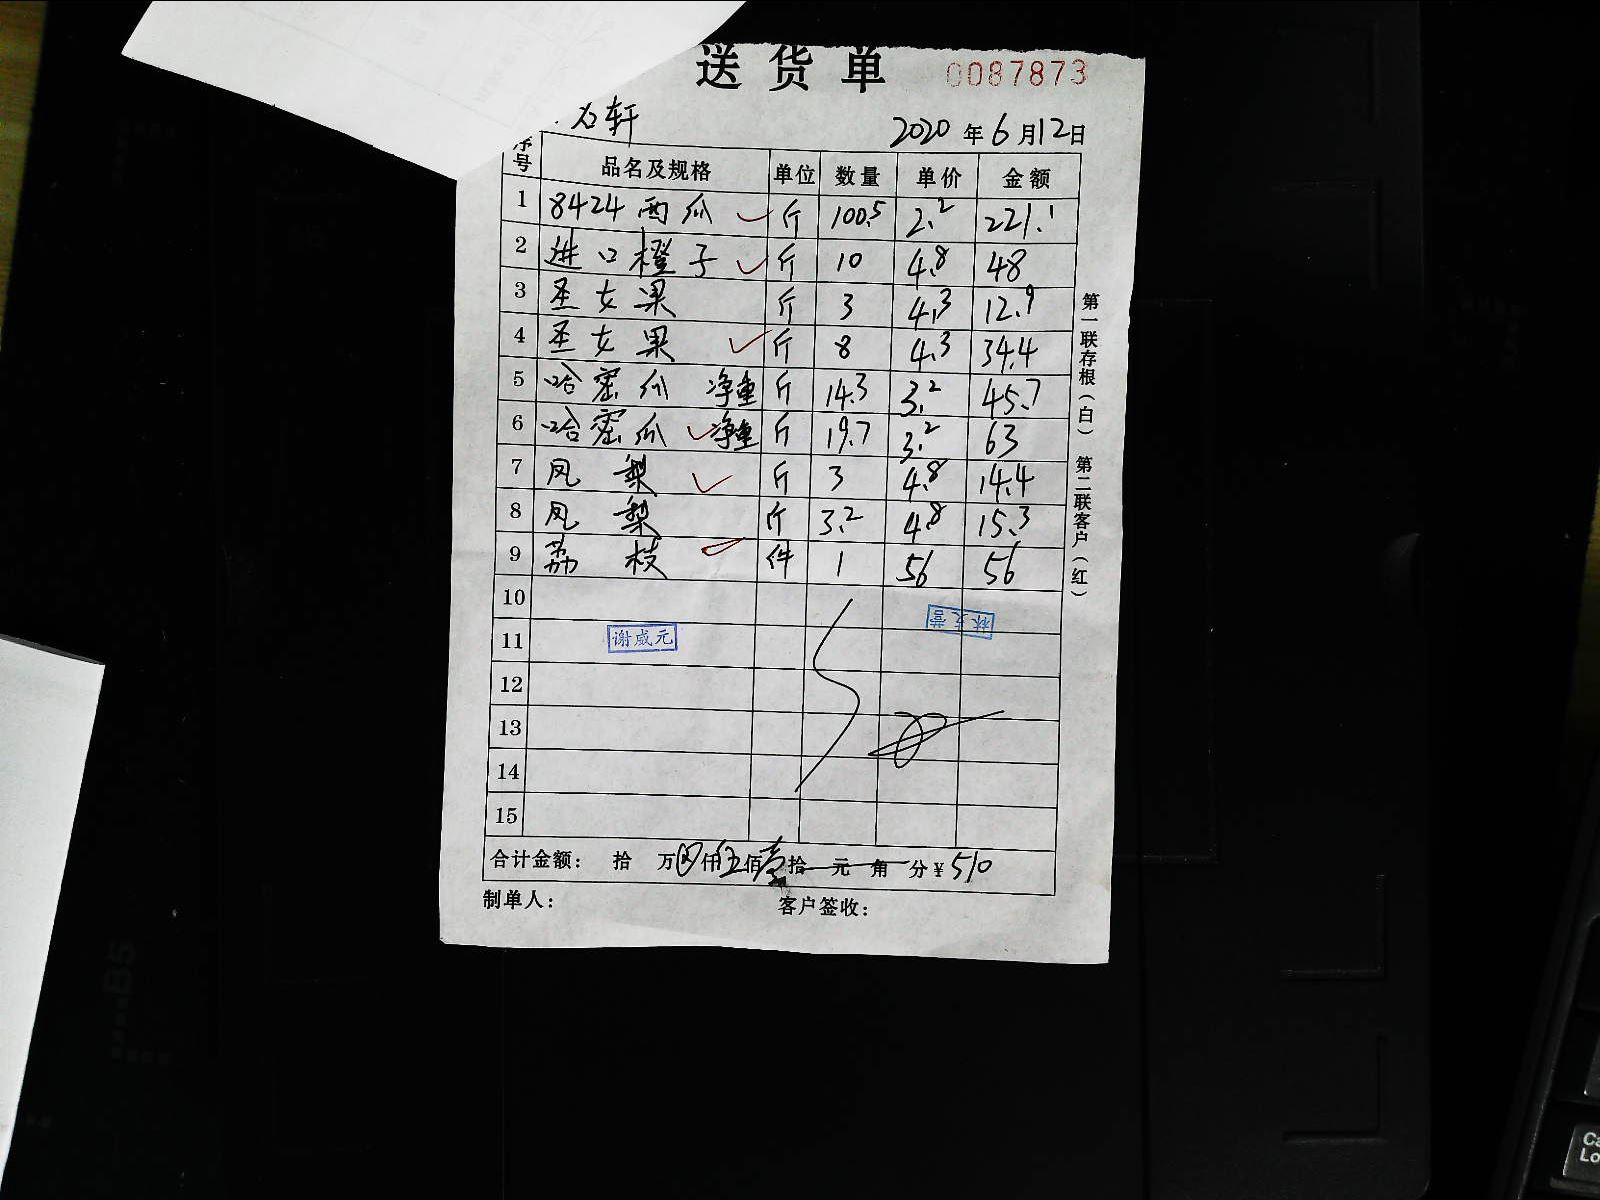 送货单 0087873
轩 2020年6月12日
序号 品名及规格 单位 数量 单价 金额
1 8424西瓜 斤 100.5 2.2 221.1
2 进口橙子 斤 10 4.8 48
3 圣女果 斤 3 4.3 12.9
4 圣女果 斤 8 4.3 34.4
5 哈密瓜 净重 斤 14.3 3.2 45.7
6 哈密瓜 净重 斤 19.7 3.2 63
7 凤梨 斤 3 4.8 14.4
8 凤梨 斤 3.2 4.8 15.3
9 荔枝 件 1 56 56
10
11 谢咸元
12
13
14
15
合计金额: 拾 万 仟伍佰壹拾 元 角 分¥510
制单人: 客户签收:
第一联存根(白) 第二联客户(红)
B5